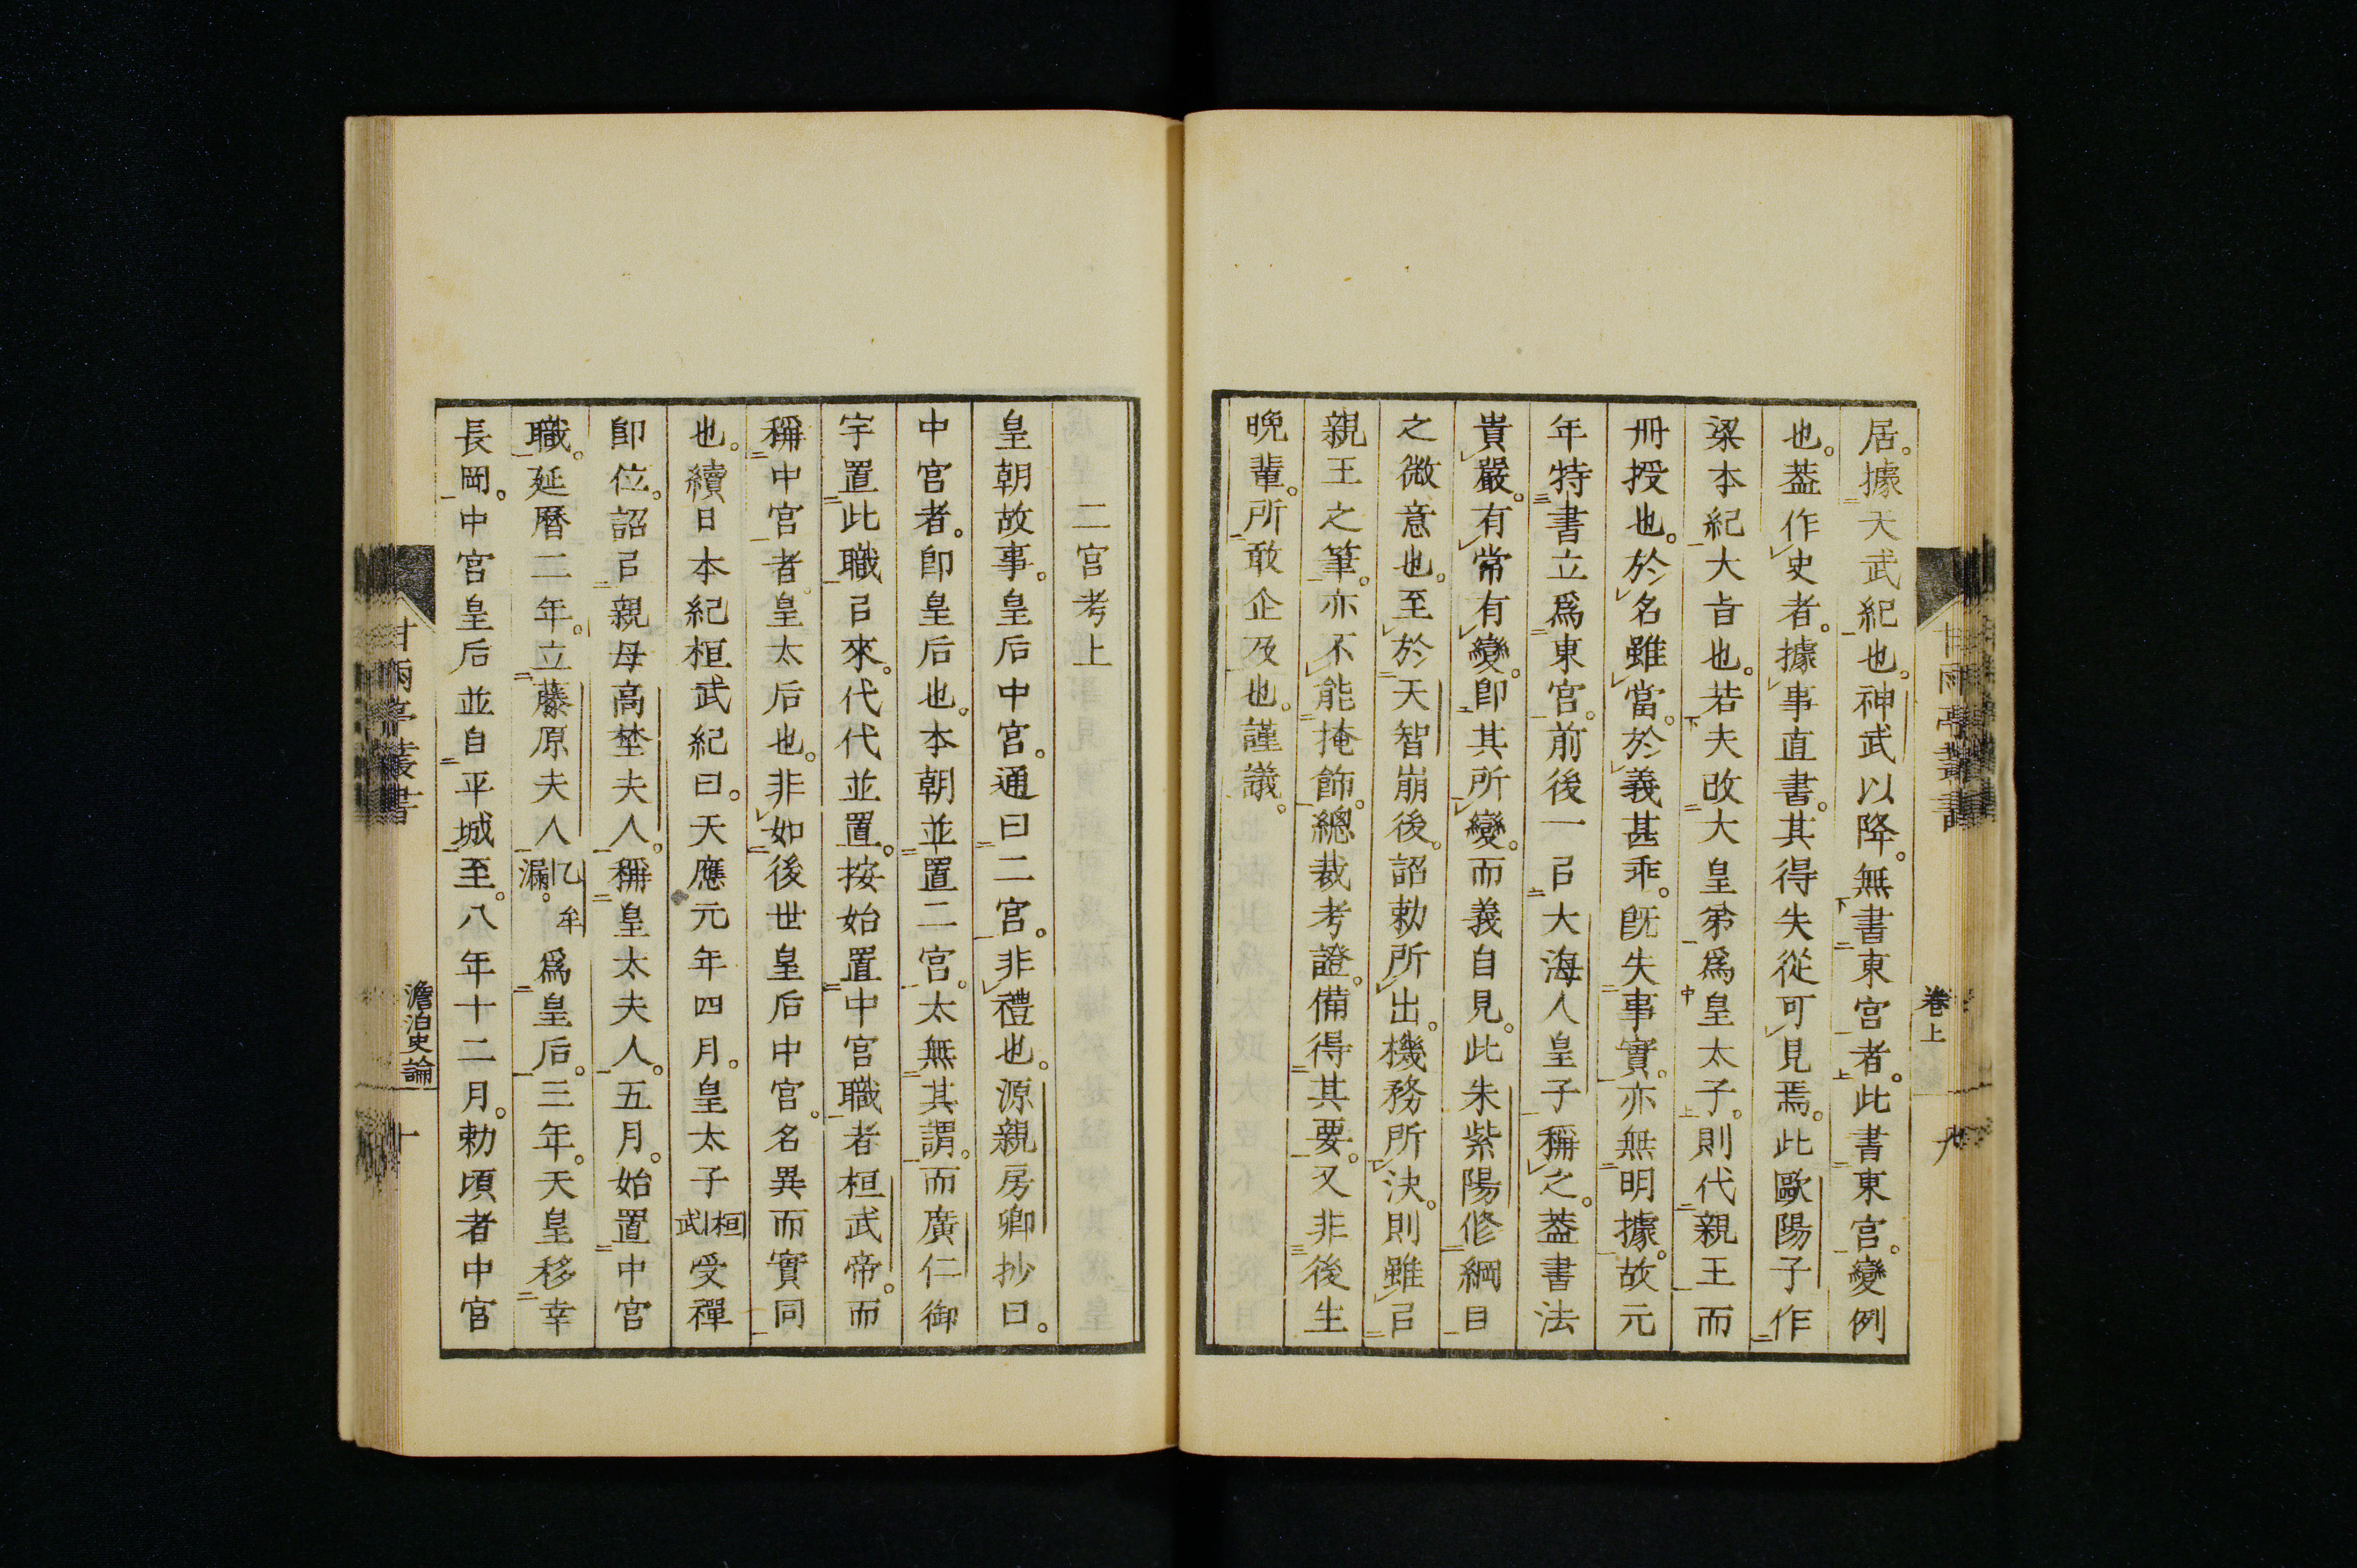 居。據天武紀也。神武以降。無書東宮者。此書東宮。變例
也。葢作史者。據事直書。其得失從可見焉。此歐陽子作
梁本紀大旨也。若夫改大皇弟爲皇太子。則代親王而
冊授也。於名雖當。於義甚乖。旣失事實。亦無明據。故元
年特書立爲東宮。前後一㠯大海人皇子稱之。葢書法
貴嚴。有常有變。卽其所變。而義自見。此朱紫陽修綱目
之微意也。至於天智崩後。詔勅所出。機務所決。則雖㠯
親王之筆。亦不能掩飾。總裁考證。備得其要。又非後生
晚輩。所敢企及也。謹議。
甘雨亭叢書
卷上
九
二宮考上
皇朝故事。皇后中宮。通曰二宮。非禮也。源親房卿抄曰。
中宮者。卽皇后也。本朝並置二宮。太無其謂。而廣仁御
宇置此職㠯來。代代並置。按始置中宮職者桓武帝。而
稱中宮者。皇太后也。非如後世皇后中宮。名異而實同
也。續日本紀桓武紀曰。天應元年四月。皇太子桓武受禪
卽位。詔㠯親母高埜夫人。稱皇太夫人。五月。始置中宮
職。延曆二年。立藤原夫人乙牟漏。爲皇后。三年。天皇移幸
長岡。中宮皇后並自平城至。八年十二月。勅頃者中宮
甘雨亭叢書
澹泊史論
十